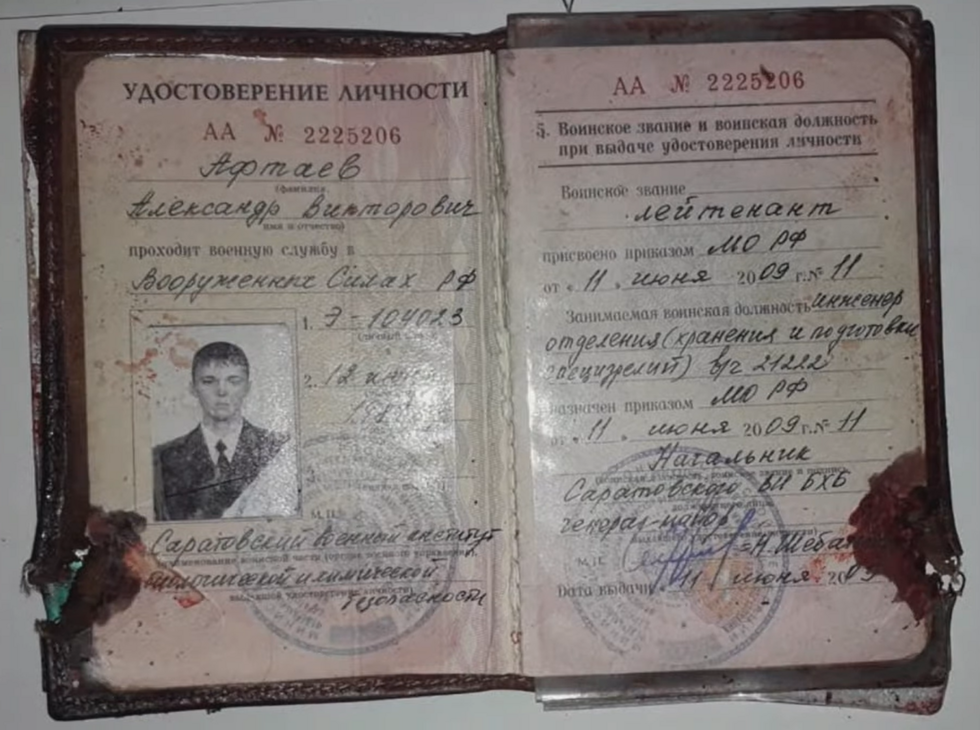 УДОСТОВЕРЕНИЕ ЛИЧНОСТИ
АА № 2225206
Афтаев
(фамилия,
Александр Викторович
имя и отчество)
проходит военную службу в
Вооруженных Силах РФ
1. Э-104023
2. 12
М.П.
Саратовский военный институт
биологической и химической
безопасности
АА № 2225206
5. Воинское звание и воинская должность
при выдаче удостоверения личности
Воинское звание
лейтенант
присвоено приказом МО РФ
от « 11 » июня 2009 г. № 11
Занимаемая воинская должность инженер
отделения (хранения и подготовки
специзделий) в/ч 21222
назначен приказом МО РФ
от « 11 » июня 2009 г. № 11
Начальник
Саратовского ВИ БХБ
генерал-майор
М.П.
Дата выдачи « 11 » июня 2009